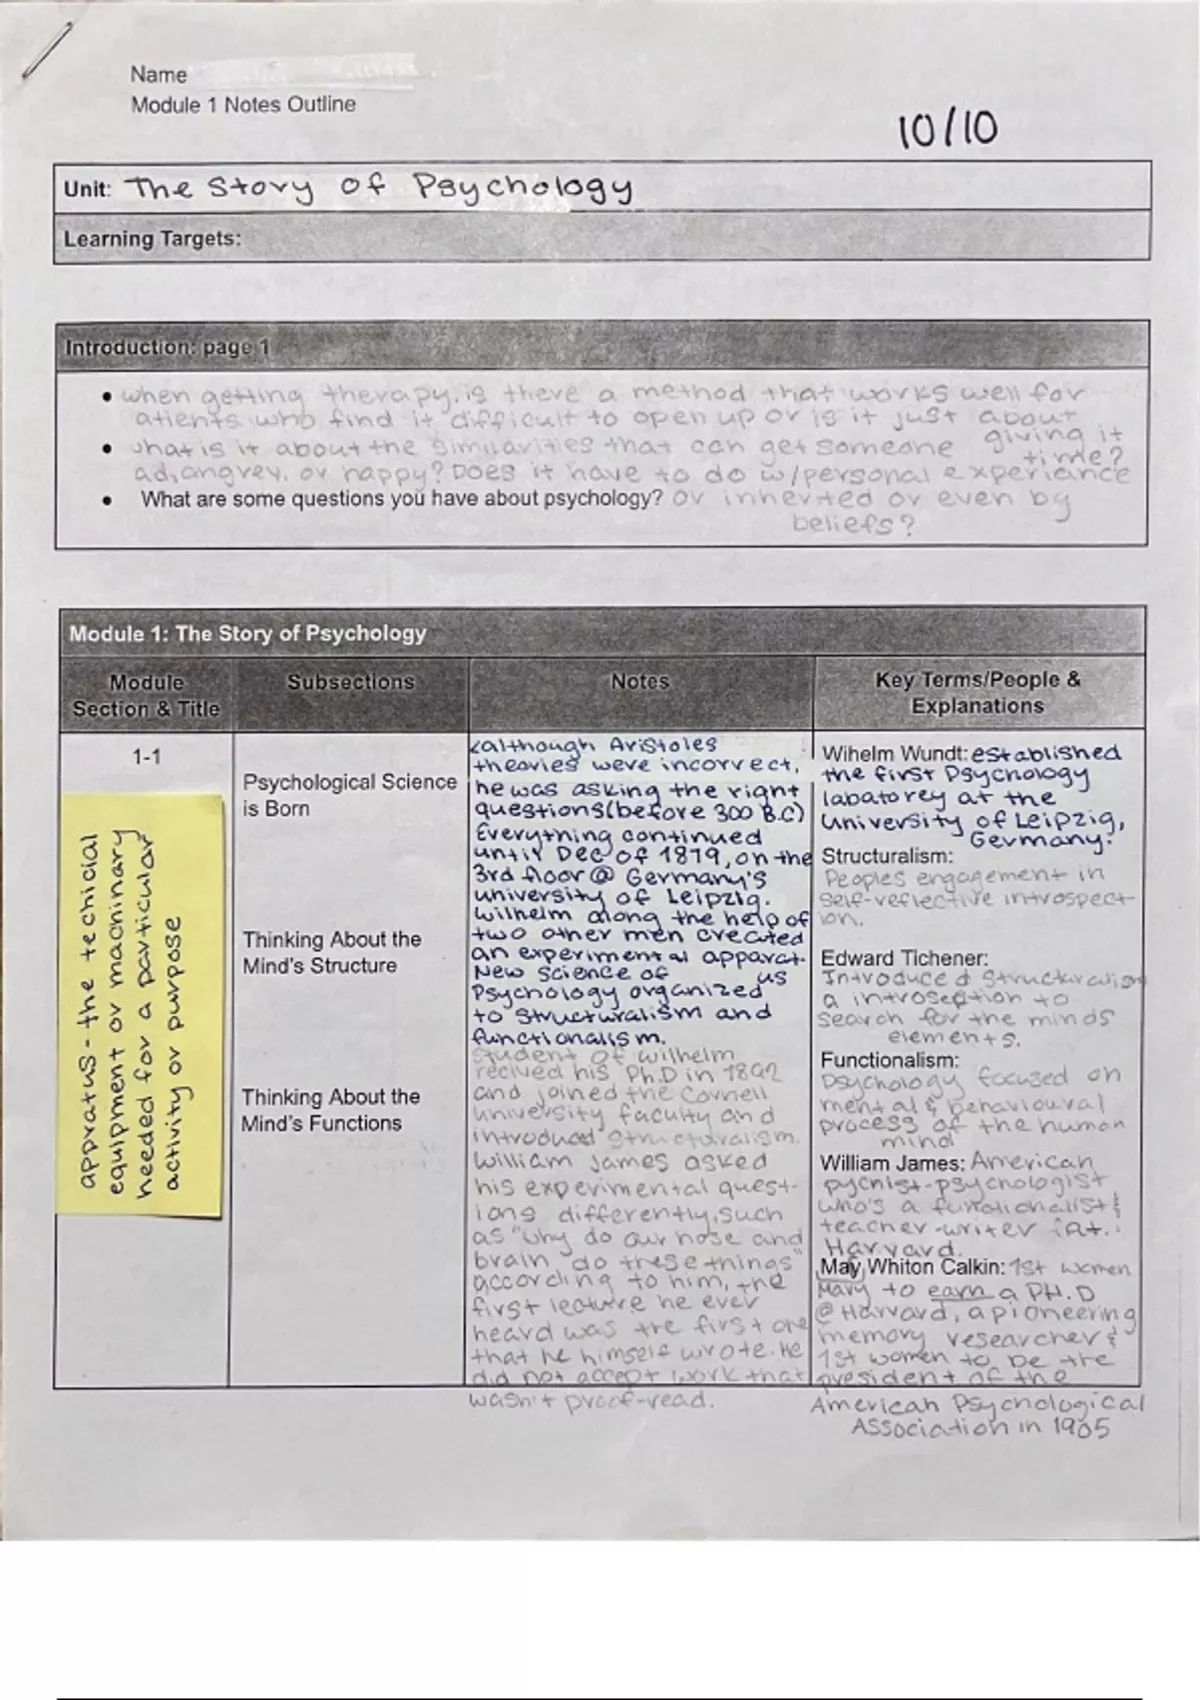 Name
Module 1 Notes Outline
10/10
Unit: The Story of Psychology
Learning Targets:
Introduction: page 1
• when getting therapy, is there a method that works well for
atients who find it difficult to open up or is it just about
giving it
time?
• what is it about the similarities that can get someone
ad, angrey, or happy? Does it have to do w/personal experiance
• What are some questions you have about psychology? or inherited or even by
beliefs?
Module 1: The Story of Psychology
Module
Section & Title
Subsections
Notes
Key Terms/People &
Explanations
1-1
appratus - the techicial
equipment or machinary
needed for a particular
activity or purpose
Psychological Science
is Born
Thinking About the
Mind's Structure
Thinking About the
Mind's Functions
although Aristoles
theories were incorrect,
he was asking the right
questions (before 300 B.C)
Everything continued
until Dec of 1879, on the
3rd floor @ Germany's
university of Leipzig.
Wilhelm along the help of
two other men created
an experimental apparat-
us
New science of
Psychology organized
to structuralism and
functionalism.
student of wilhelm
recived his Ph.D in 1892
and joined the Cornell
university faculty and
introduced structuralism.
William James asked
his experimental quest-
ions differently, such
as "why do our nose and
brain do these things"
according to him, the
first lecture he ever
heard was the first one
that he himself wrote. He
did not accept work that
wasn't proof-read.
Wihelm Wundt: established
the first Psychology
labatorey at the
University of Leipzig,
Germany.
Structuralism:
Peoples engagement in
self-reflective introspect-
ion.
Edward Tichener:
Introduced structuralism
a introseption to
search for the minds
elements.
Functionalism:
Psychology focused on
mental & behavioural
process of the human
mind
William James: American
pychist-psychologist
who's a functionalist &
teacher-writer at
Harvard.
May Whiton Calkin: 1st women
Mary to earn a PH.D
@ Harvard, a pioneering
memory researcher &
1st women to be the
president of the
American Psychological
Association in 1905